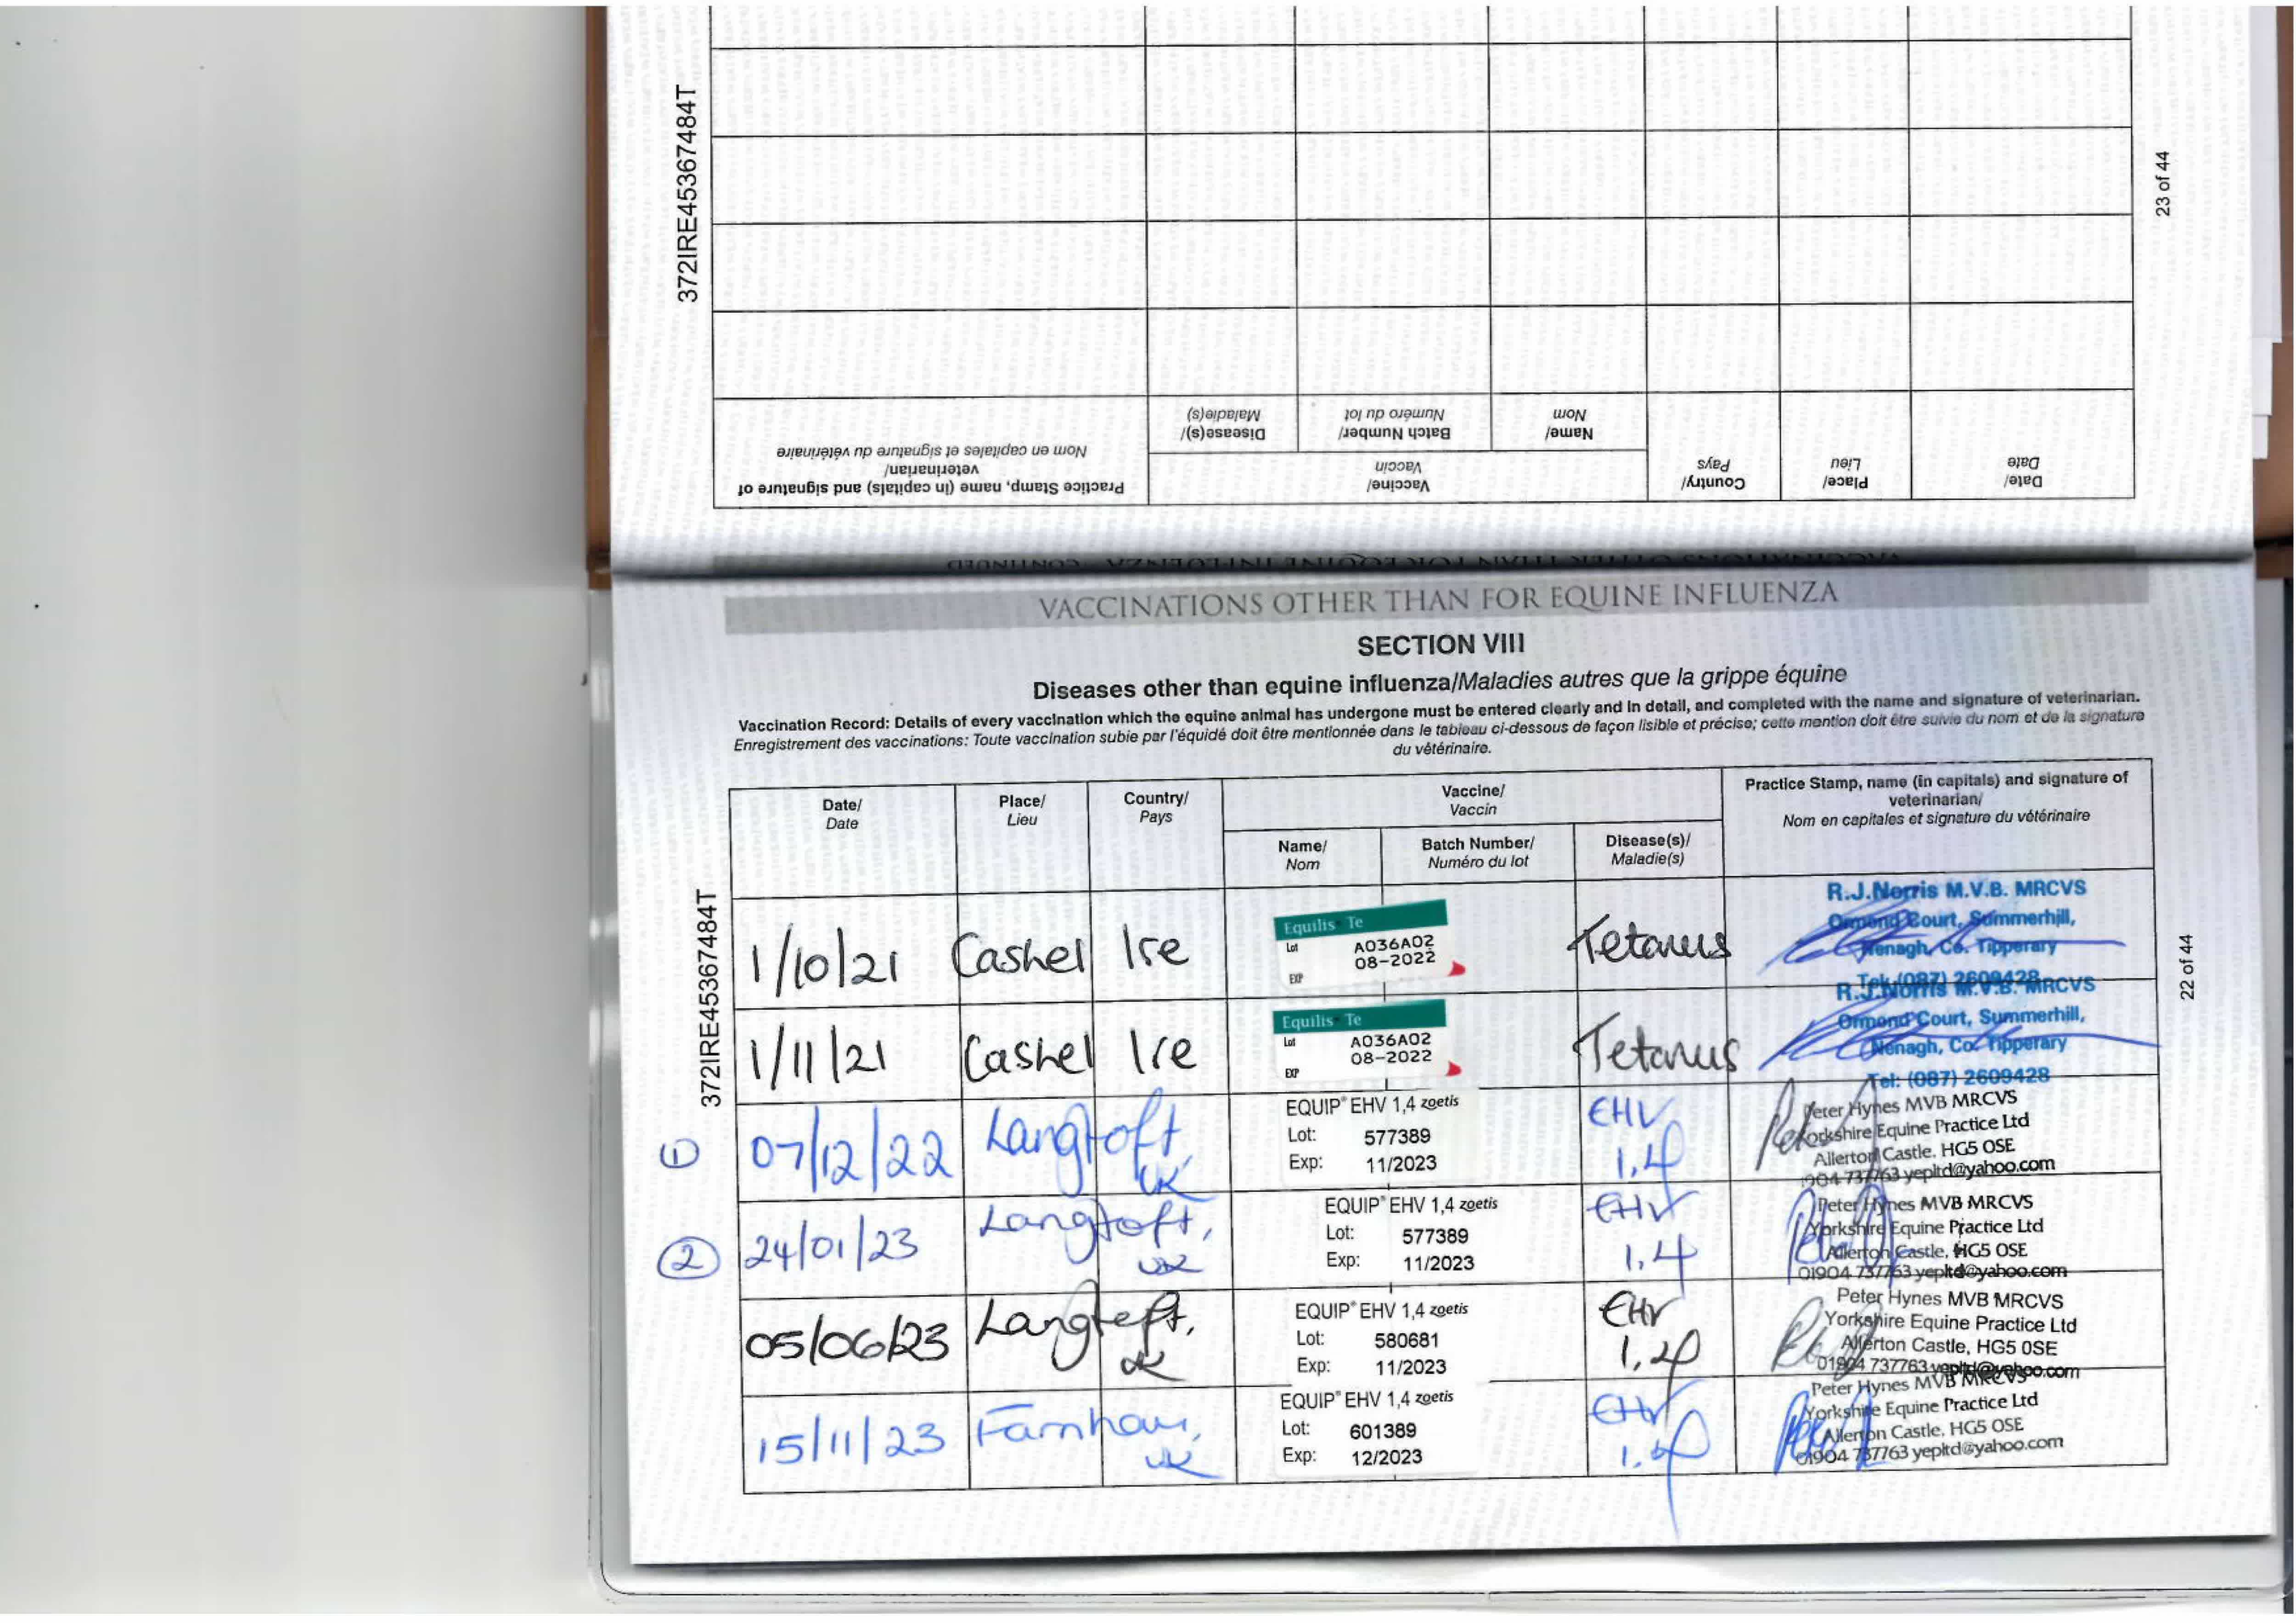 372IRE45367484T
23 of 44
Date/ Date
Place/ Lieu
Country/ Pays
Vaccine/ Vaccin
Name/ Nom
Batch Number/ Numéro du lot
Disease(s)/ Maladie(s)
Practice Stamp, name (in capitals) and signature of
veterinarian/
Nom en capitales et signature du vétérinaire
VACCINATIONS OTHER THAN FOR EQUINE INFLUENZA - CONTINUED
VACCINATIONS OTHER THAN FOR EQUINE INFLUENZA
SECTION VIII
Diseases other than equine influenza/Maladies autres que la grippe équine
Vaccination Record: Details of every vaccination which the equine animal has undergone must be entered clearly and in detail, and completed with the name and signature of veterinarian.
Enregistrement des vaccinations: Toute vaccination subie par l'équidé doit être mentionnée dans le tableau ci-dessous de façon lisible et précise; cette mention doit être suivie du nom et de la signature
du vétérinaire.
372IRE45367484T
22 of 44
Date/ Date
Place/ Lieu
Country/ Pays
Vaccine/ Vaccin
Name/ Nom
Batch Number/ Numéro du lot
Disease(s)/ Maladie(s)
Practice Stamp, name (in capitals) and signature of
veterinarian/
Nom en capitales et signature du vétérinaire
1/10/21 Cashel Ire
Equilis Te
Lot A036A02
08-2022
EXP
Tetanus
R.J.Norris M.V.B. MRCVS
Ormond Court, Summerhill,
Nenagh, Co. Tipperary
Tel: (087) 2609428
1/11/21 Cashel Ire
Equilis Te
Lot A036A02
08-2022
EXP
Tetanus
R.J.Norris M.V.B. MRCVS
Ormond Court, Summerhill,
Nenagh, Co. Tipperary
Tel: (087) 2609428
1 07/12/22 Langtoft, UK
EQUIP® EHV 1,4 zoetis
Lot: 577389
Exp: 11/2023
EHV
1,4
Peter Hynes MVB MRCVS
Yorkshire Equine Practice Ltd
Allerton Castle. HG5 OSE
904 737763 yepltd@yahoo.com
2 24/01/23 Langtoft, UK
EQUIP® EHV 1,4 zoetis
Lot: 577389
Exp: 11/2023
EHV
1,4
Peter Hynes MVB MRCVS
Yorkshire Equine Practice Ltd
Allerton Castle, HG5 OSE
01904 737763 yepltd@yahoo.com
05/06/23 Langtoft, UK
EQUIP® EHV 1,4 zoetis
Lot: 580681
Exp: 11/2023
EHV
1,4
Peter Hynes MVB MRCVS
Yorkshire Equine Practice Ltd
Allerton Castle, HG5 OSE
01904 737763 yepltd@yahoo.com
15/11/23 Farnham, UK
EQUIP® EHV 1,4 zoetis
Lot: 601389
Exp: 12/2023
EHV
1,4
Peter Hynes MVB MRCVS
Yorkshire Equine Practice Ltd
Allerton Castle. HG5 OSE
01904 737763 yepltd@yahoo.com